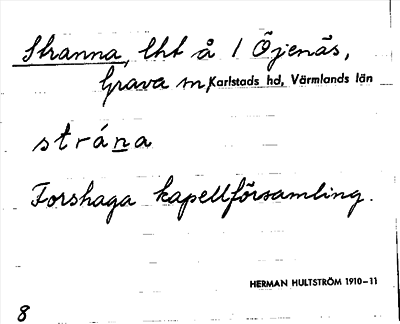 Stranna, lht å / Öjenäs,
Grava sn, Karlstads hd, Värmlands län
strána
Forshaga kapellförsamling.
HERMAN HULTSTRÖM 1910–11
8